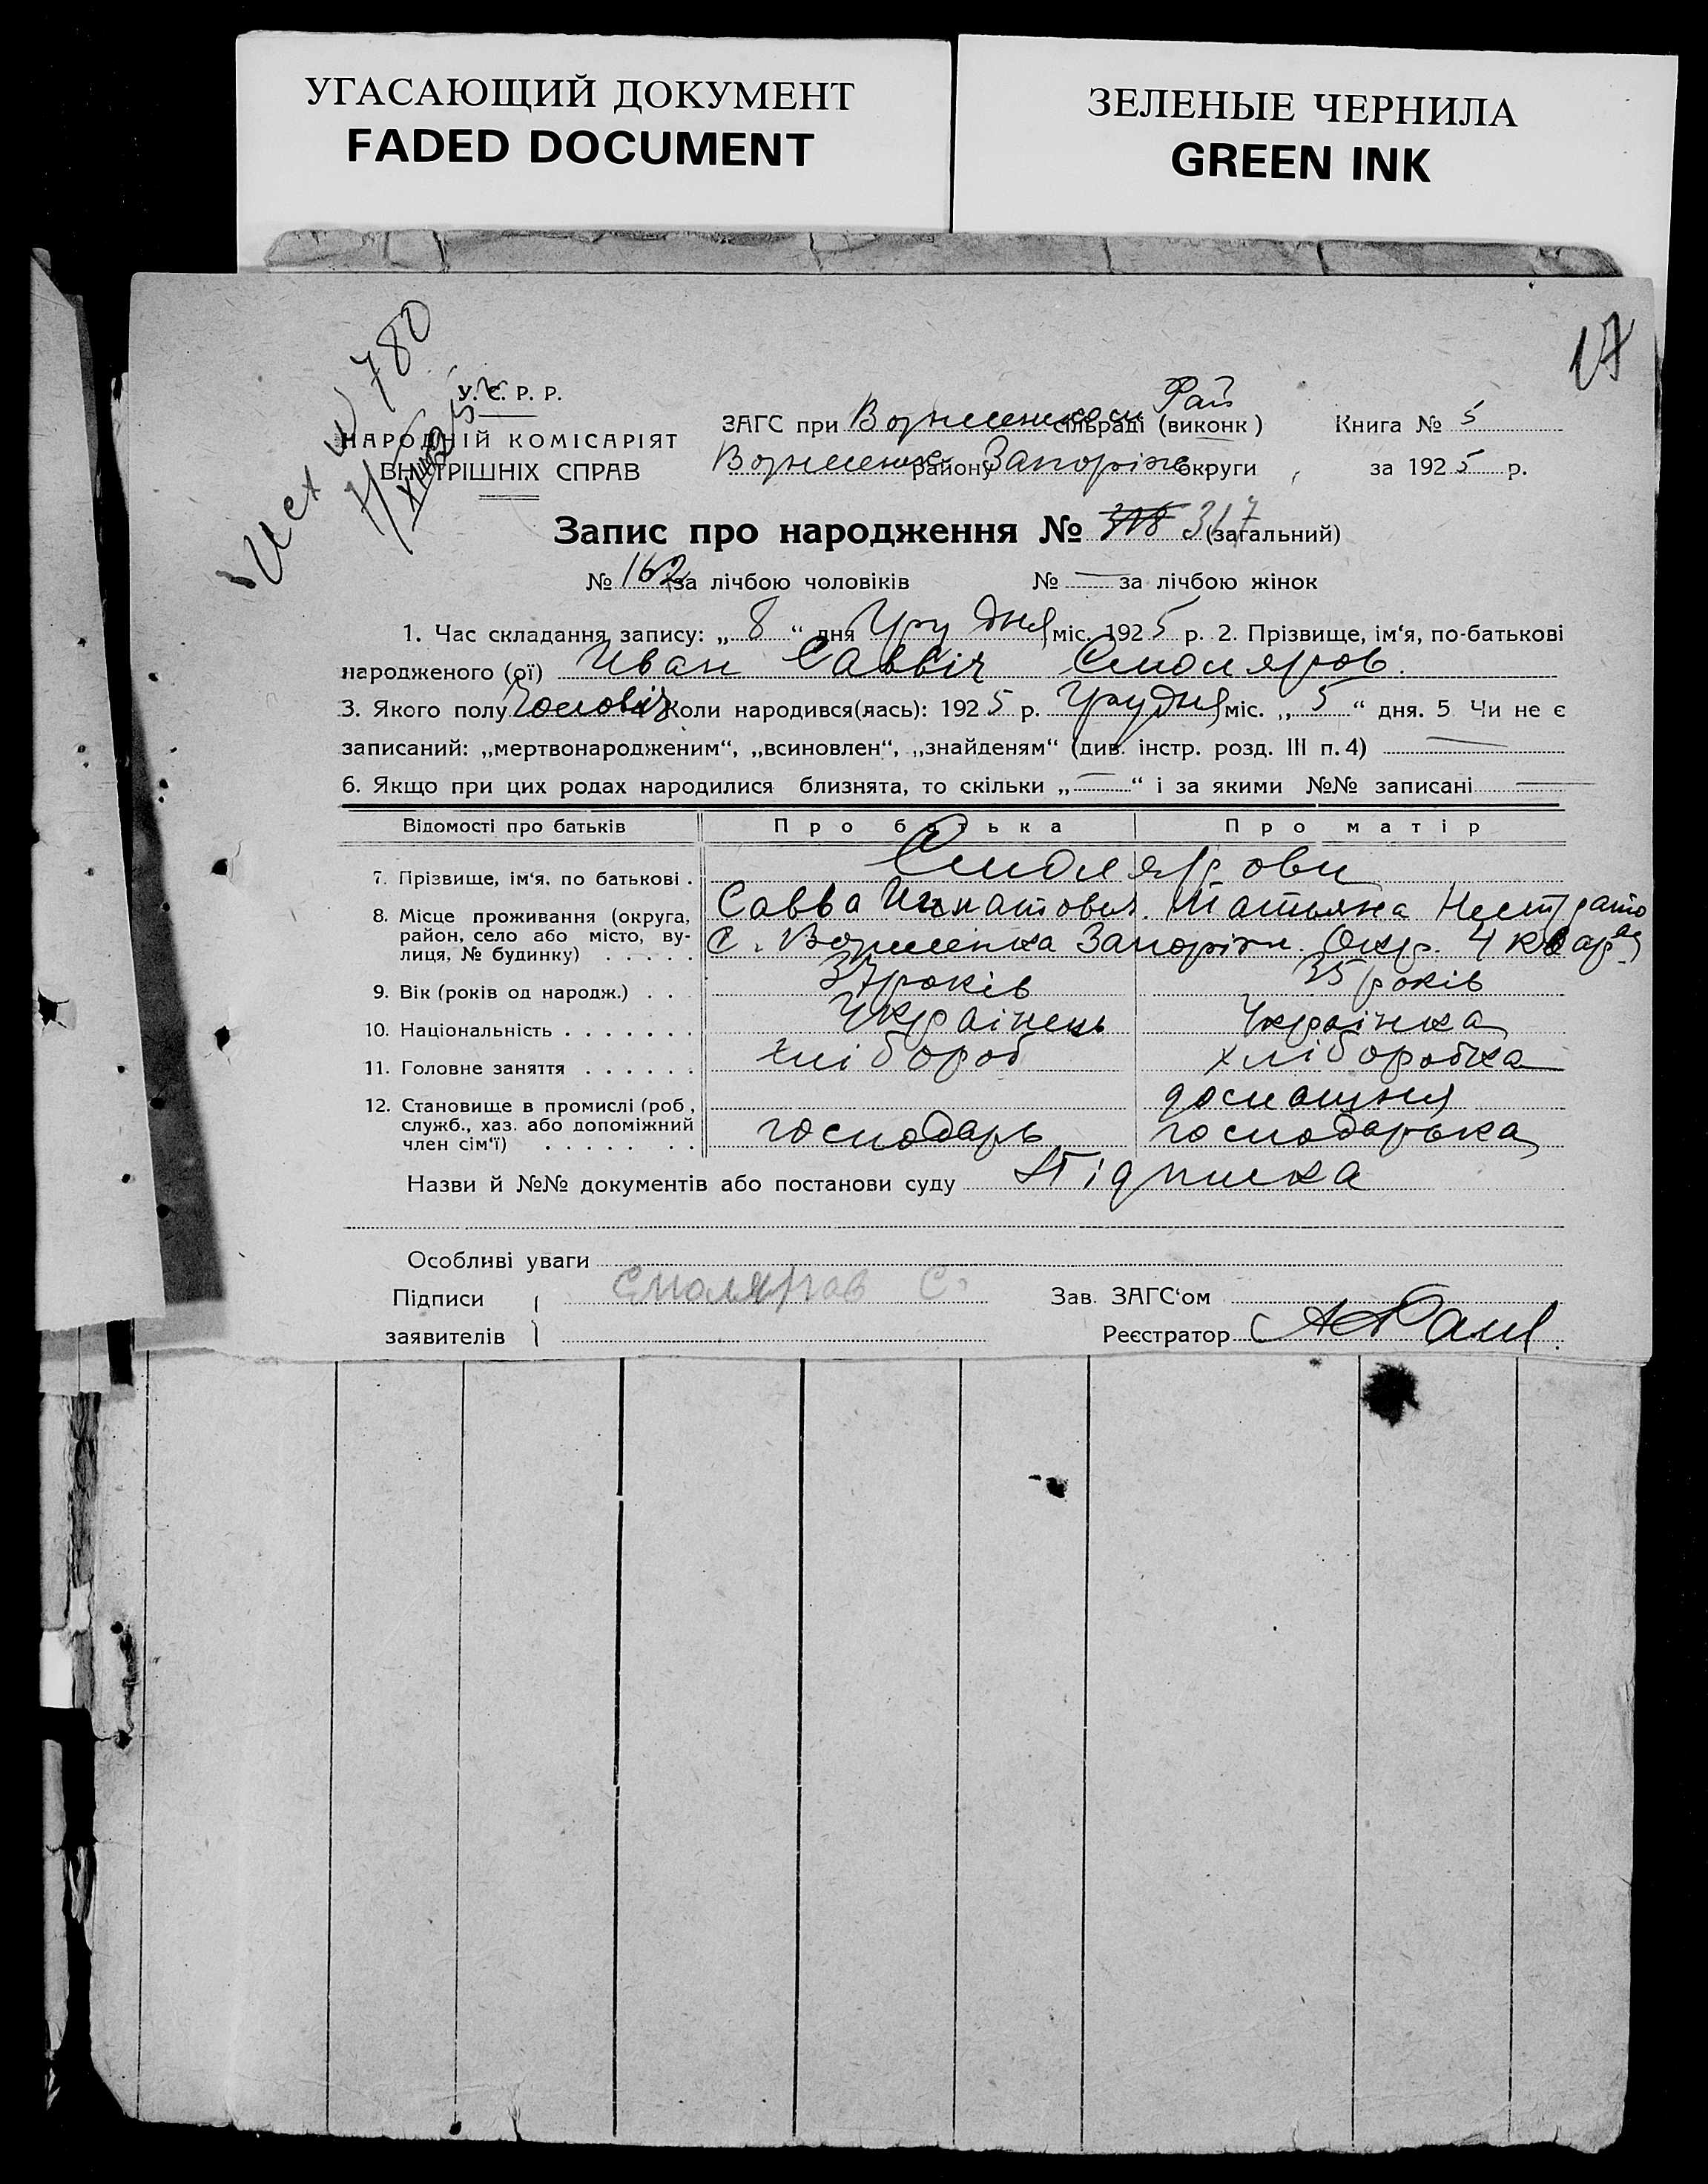 УГАСАЮЩИЙ ДОКУМЕНТ
FADED DOCUMENT
ЗЕЛЕНЫЕ ЧЕРНИЛА
GREEN INK
17
Исх № 780
У. С. Р. Р.
НАРОДНІЙ КОМІСАРІЯТ
ВНУТРІШНІХ СПРАВ
Рай
ЗАГС при сільраді (виконк) Книга № 5
району Запоріж округи, за 1925 р.
Запис про народження № 318 317 (загальний)
№ 162 за лічбою чоловіків № — за лічбою жінок
1. Час складання запису: „8“ дня Грудня міс. 1925 р. 2. Прізвище, ім‘я, по-батькові
народженого (ої) Иван Саввіч Смоляров.
3. Якого полу Чоловіч Коли народився(лась): 1925 р. Грудня міс. „5“ дня. 5 Чи не є
записаний: „мертвонародженим“, „всиновлен“, „знайденям“ (див. інстр. розд. III п. 4) —
6. Якщо при цих родах народилися близнята, то скільки „—“ і за якими №№ записані —
Відомості про батьків Про батька Про матір
7. Прізвище, ім‘я, по батькові . Смолярови
Савва Татьяна
8. Місце проживання (округа,
район, село або місто, ву-
лиця, № будинку) . . . . . С. Запоріж. Окр. 4
9. Вік (років од народж.) . . . 37 років 35 років
10. Національність . . . . . . . Українець Українка
11. Головне заняття . . . . . . хлібороб хліборобка
12. Становище в промислі (роб.,
служб., хаз. або допоміжний
член сім‘ї) . . . . . . . господарь домашня
господарька
Назви й №№ документів або постанови суду Підписка
Особливі уваги
Підписи Смоляров С. Зав. ЗАГС‘ом
заявителів Реєстратор